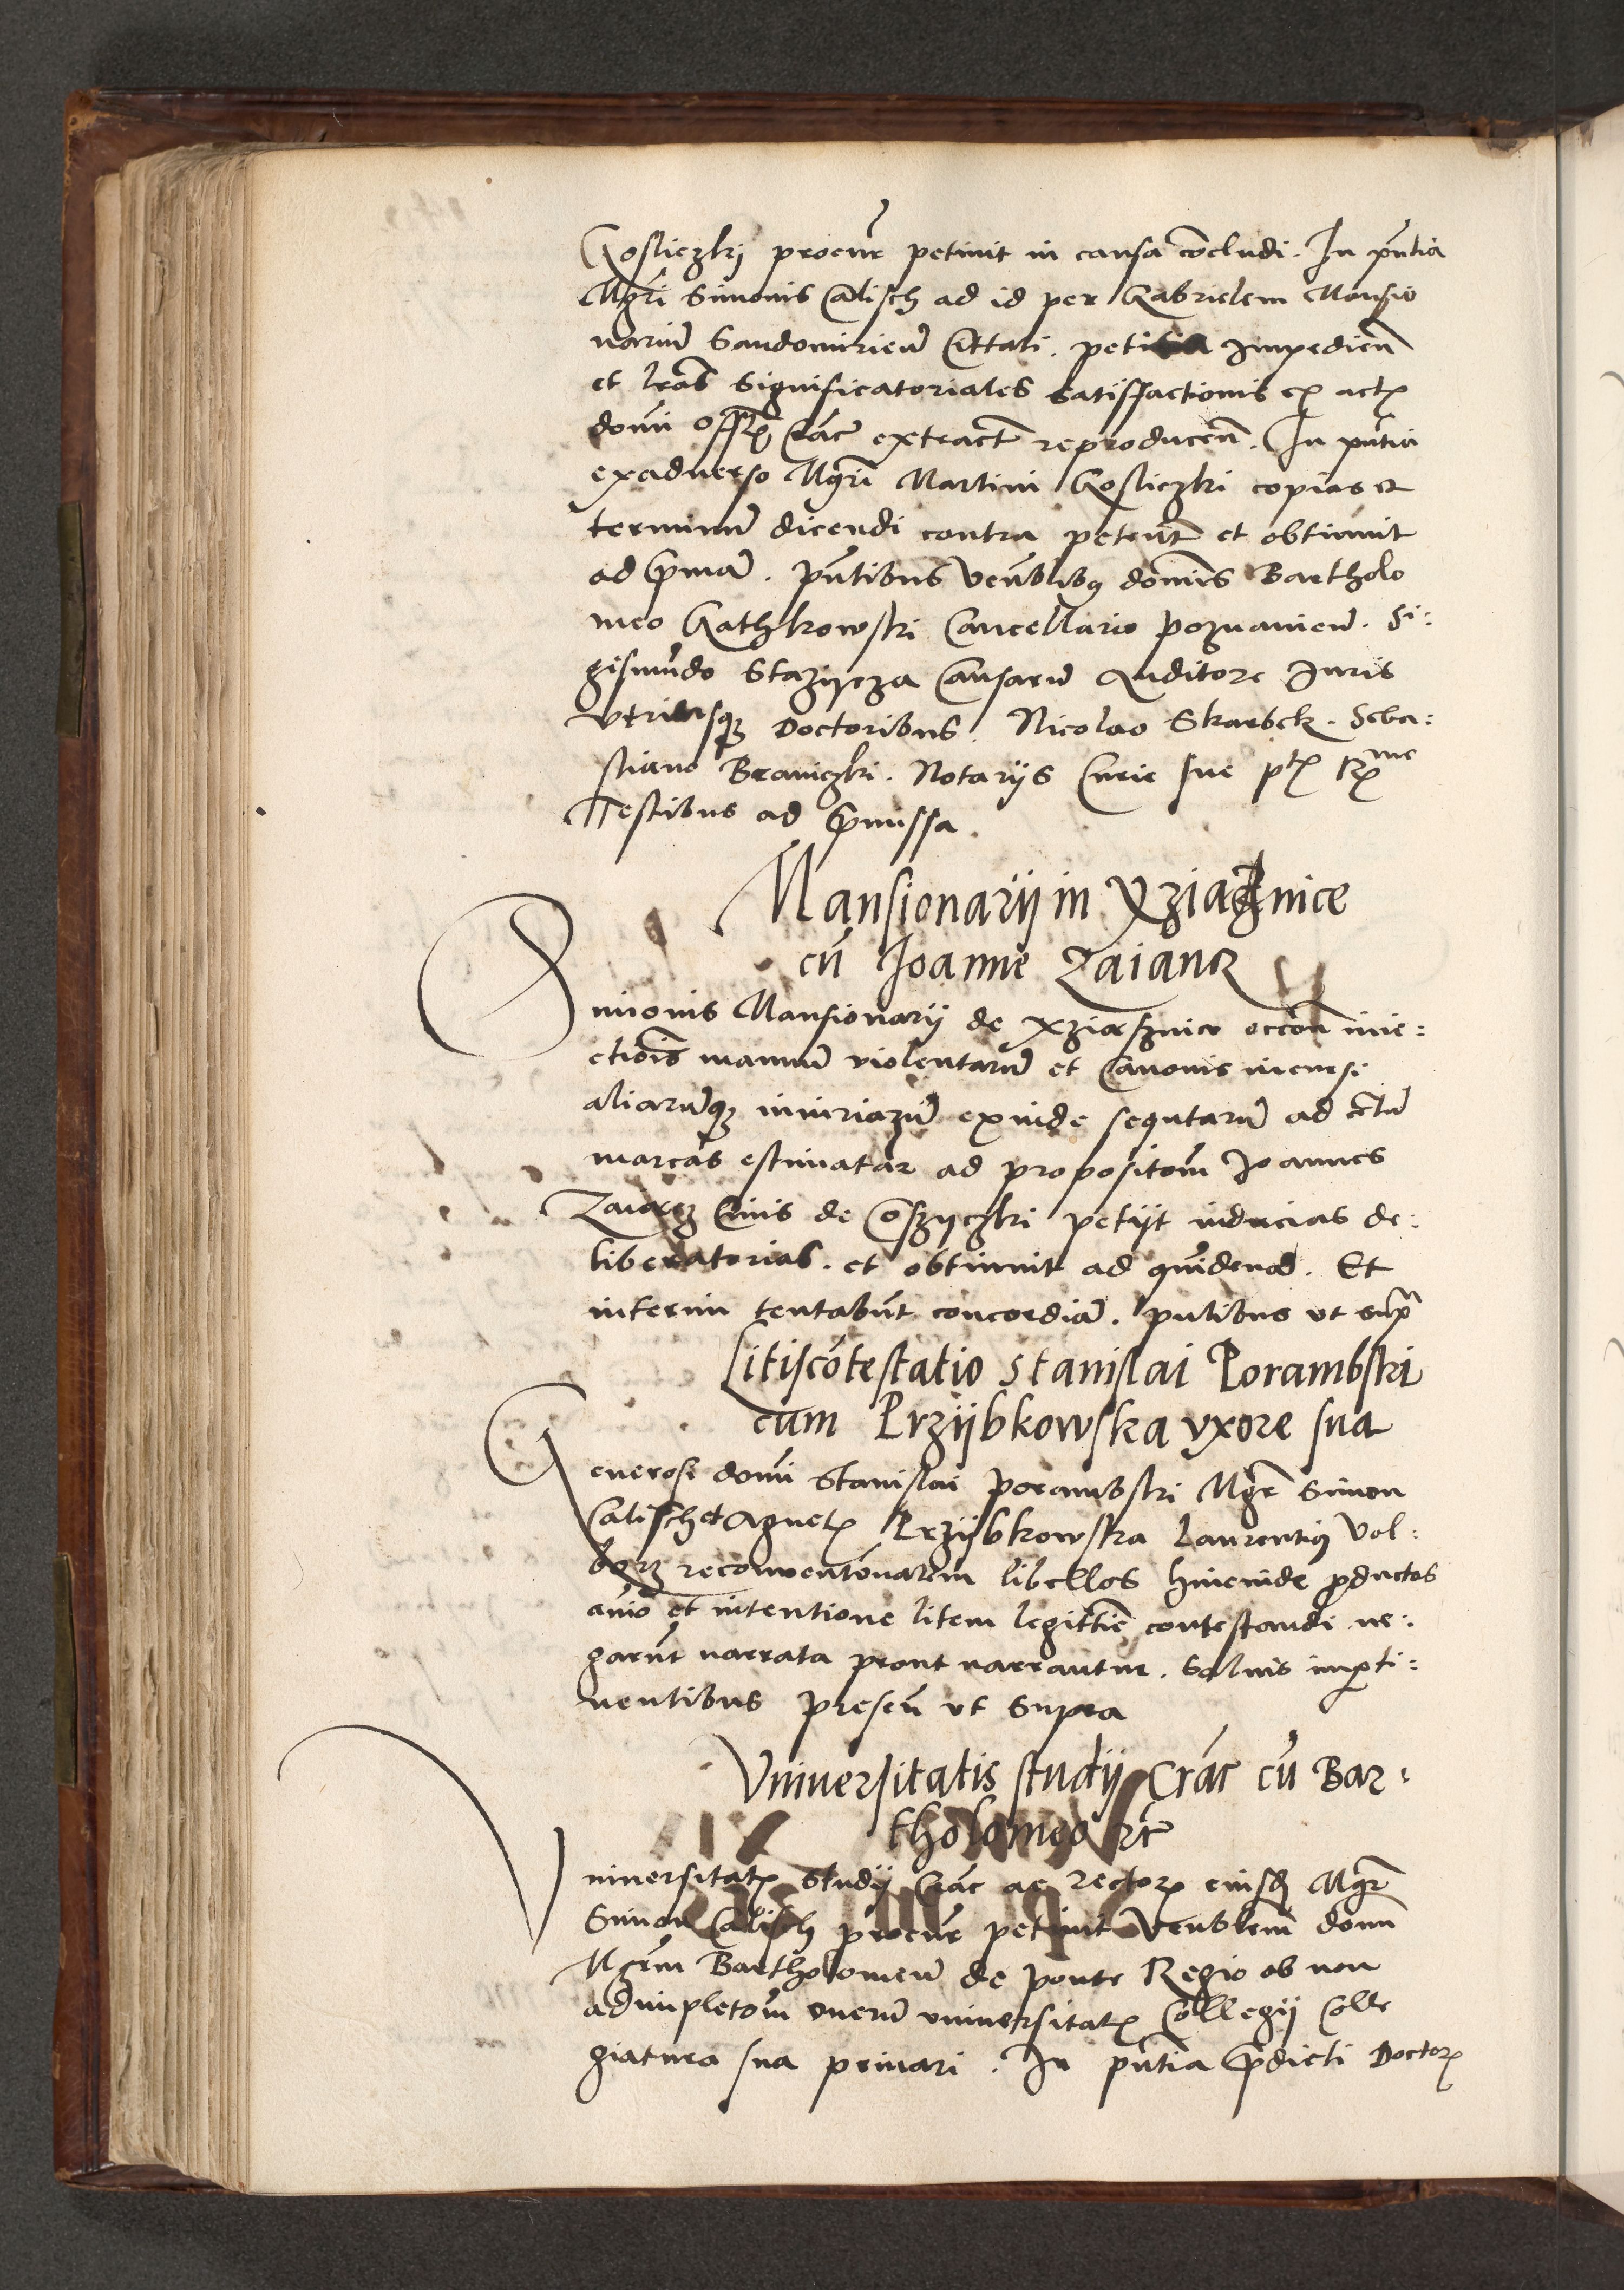 Gosliczkj procur̃ petiuit in causa cõcludi. In pñtia
Mgr̃i Simonis Calisch ad id per Gabrielem Mansio
nariũ Sandomirieñ Cittati. petitia Impedieñ
et lr̃as Significatoriales satisfactionis ex actꝭ
domi offꝭ Crac̃ extract̃ reproduceñ. In pñtia
exaduerso Mgr̃i Martini Gosliczki copias et
terminũ dicendi contra peteñt et obtinuit
ad p̃mã. Pñtibus Veñblibꝰ dominis Bartholo
meo Gathkowski Cancellario Poznanieñ. Si:
gismũdo Stazijcza Causarũ Auditore Iuris
vtriusqꝫ Doctoribus. Nicolao Skarbek. Seba:
stiano Braniczki. Notarijs Curie sue ptꝭ Rme
Testibus ad p̃missa.
Mansionarij in Xziagnice
cũ Joanne Zaiancz
Simonis Mansionarij de Xziasznice occõe inie:
ctiõis manuũ violentarũ et Canonis incursi
aliarũqꝫ iniuriarũ exinde sequtarũ ad cẽtũ
marcas estimatar̃ ad propositõm Joannes
Zaiancz Ciuis de Coszyczki petijt inducias de:
liberatorias. et obtinuit ad quĩdenã. Et
interim tentabũt concordiã. pñtibus vt supr̃
Litiscõtestatio Stanislai Porambski
cum Przijbkowska vxore sua
Generosi domĩ Stanislai Porambski Mgr̃ Simon
Calisch et Agnetꝭ Przijbkowska Laurentiꝰ Vol:
borz reconuentõnalem libellos hincinde productos
aĩo et intentione litem legittĩe contestandi ne:
garũt narrata prout narrantur. Saluis imꝑti:
nentibus Preseñ vt Supra
Vniuersitatis studij Crac̃ cũ Bar:
tholomeo etc̃
Vniuersitatꝭ Studij Crac̃ ac rectorꝭ eiusdẽ Mgr̃
Simon Calisch procur̃ petiuit Veñblem domĩ
Mgr̃m Bartholomeũ de ponte Regio ob non
adimpletõm onerũ vniuersitatꝭ Collegij Colle
giatura sua priuari. In pñtia p̃dicti Doctorꝭ